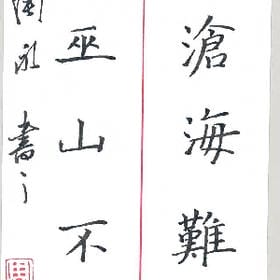 滄海難
巫山不
永書